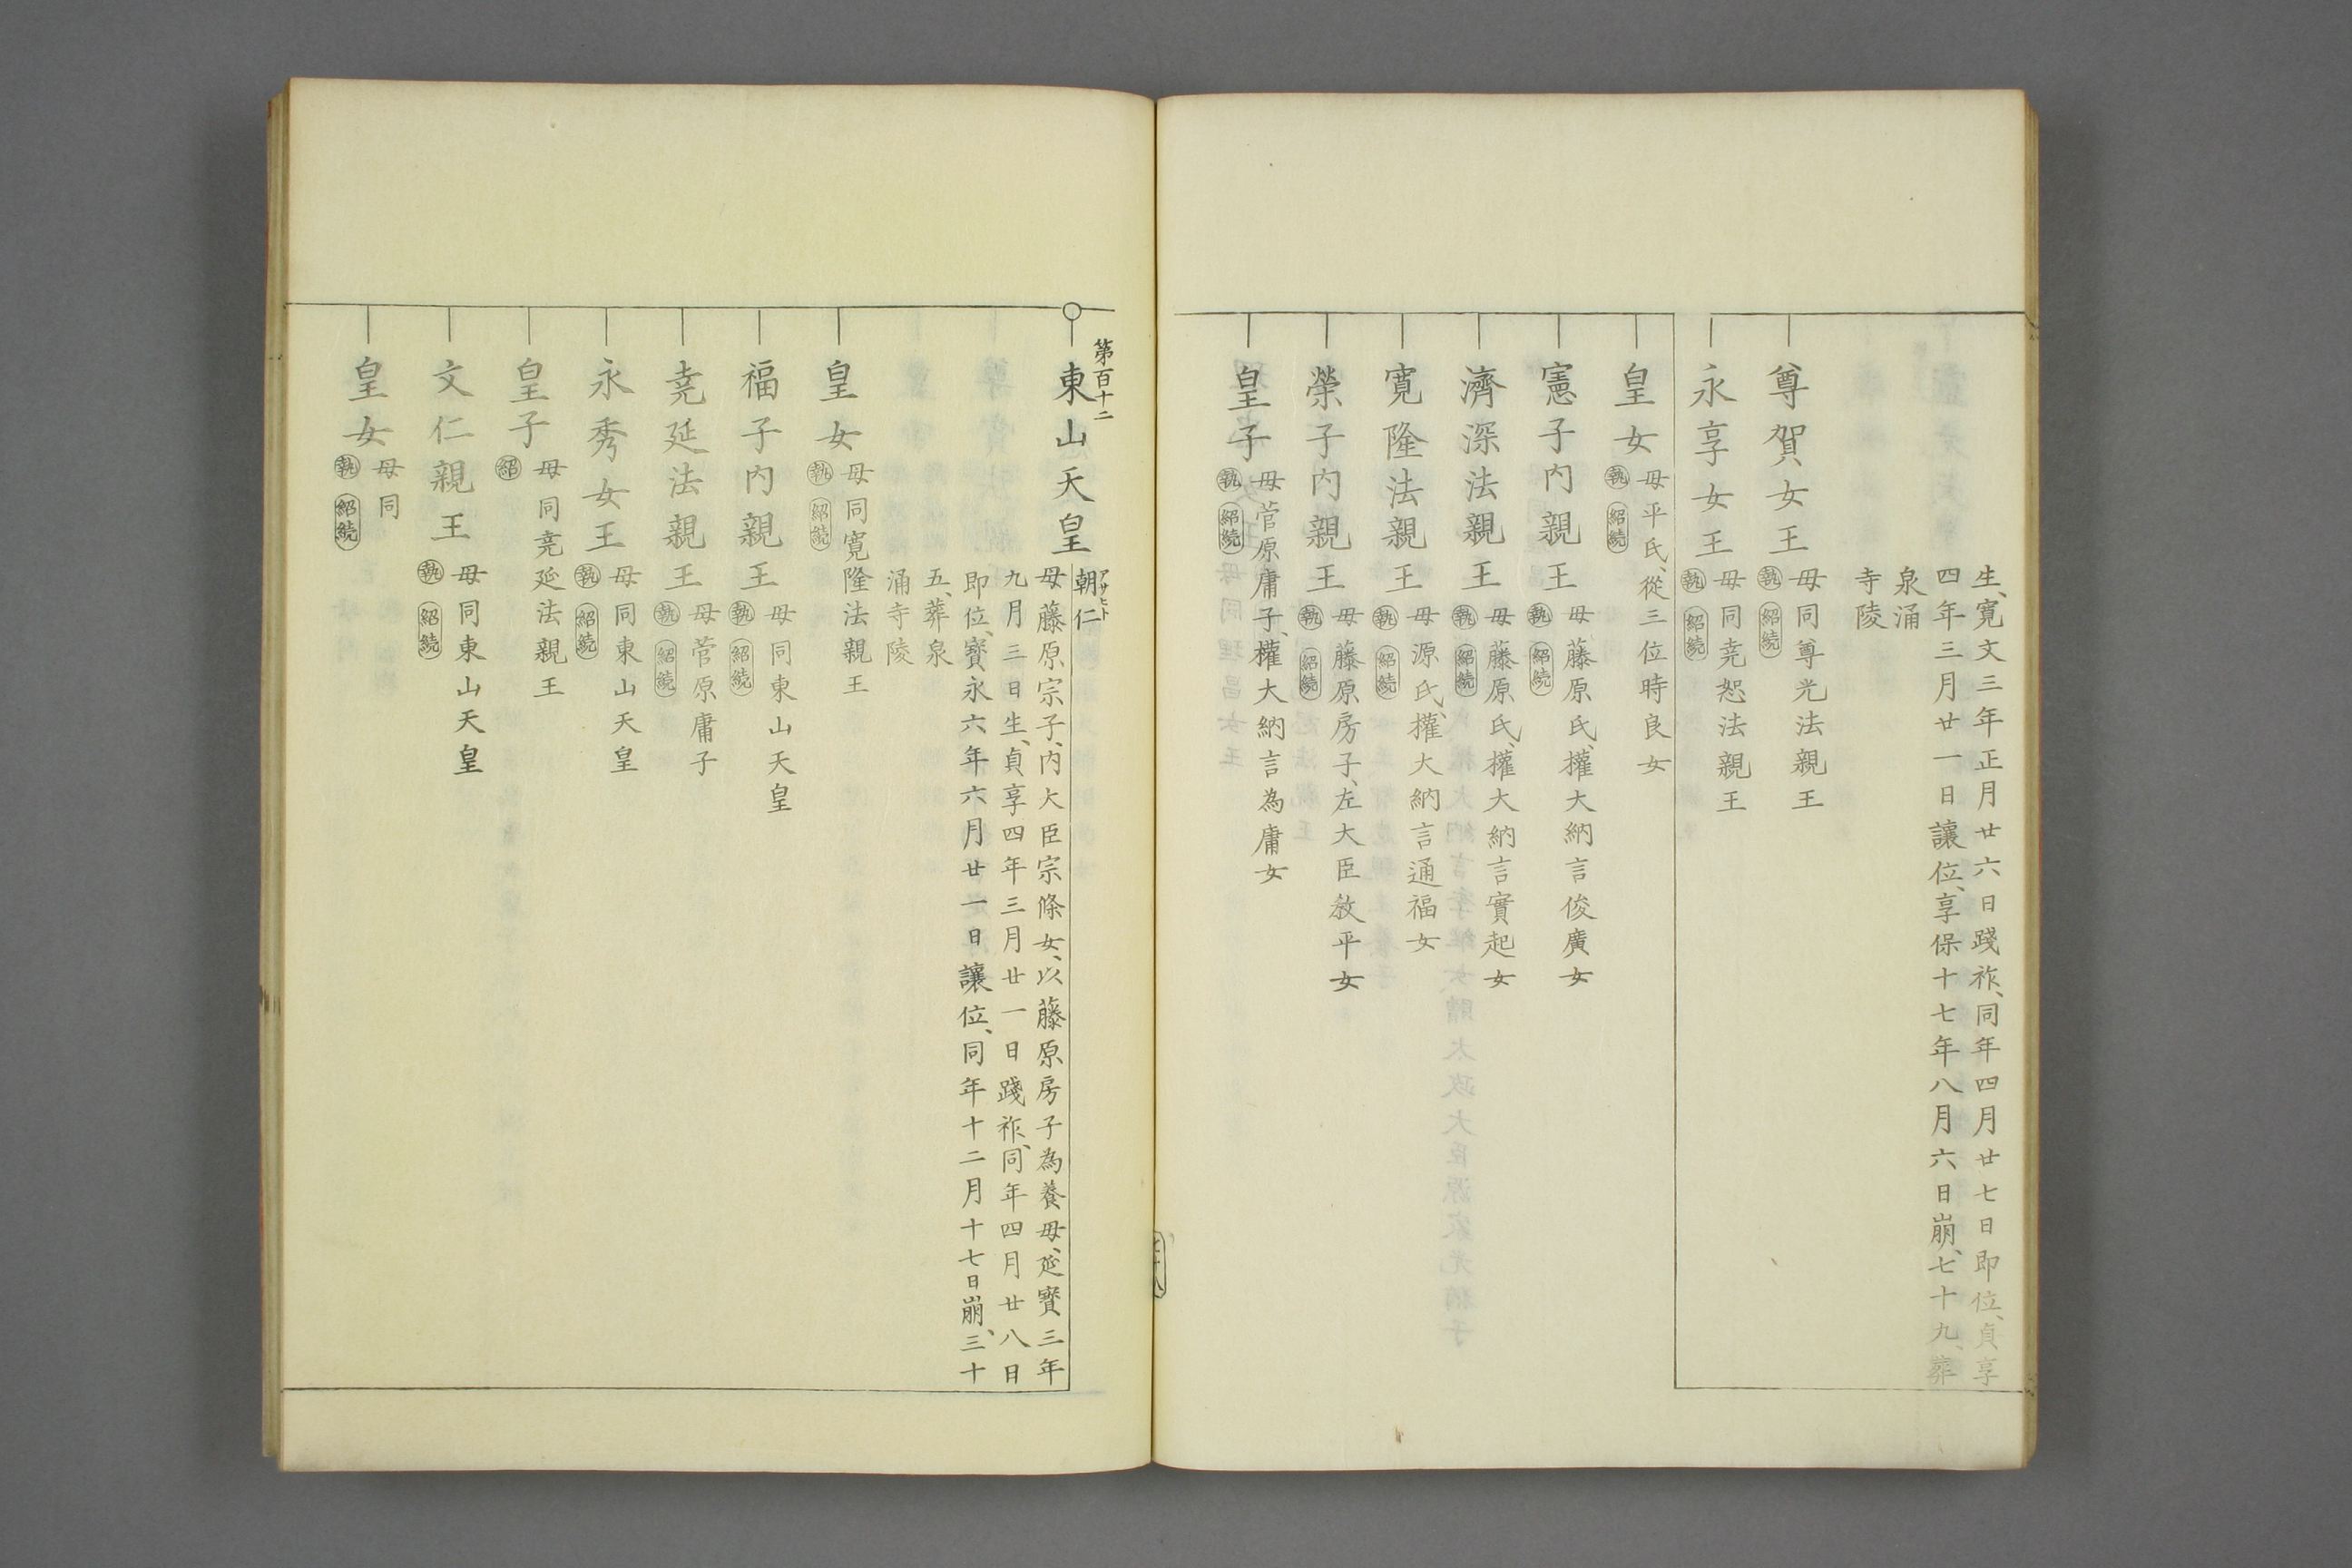 生、寛文三年正月廿六日踐祚、同年四月廿七日即位、貞享
四年三月廿一日讓位、享保十七年八月六日崩、七十九、葬
泉涌
寺陵
尊賀女王
母同尊光法親王
執 紹続
永享女王
母同尭恕法親王
執 紹続
皇女
母平氏、從三位時良女
執 紹続
憲子内親王
母藤原氏、權大納言俊廣女
執 紹続
濟深法親王
母藤原氏、權大納言實起女
執 紹続
寛隆法親王
母源氏、權大納言通福女
執 紹続
榮子内親王
母藤原房子、左大臣教平女
執 紹続
皇子
母菅原庸子、權大納言為庸女
執 紹続
第百十二
東山天皇
朝仁
アサヒト
母藤原宗子、内大臣宗條女、以藤原房子為養母、延寶三年
九月三日生、貞享四年三月廿一日踐祚、同年四月廿八日
即位、寳永六年六月廿一日讓位、同年十二月十七日崩、三十
五、葬泉
涌寺陵
皇女
母同寛隆法親王
執 紹続
福子内親王
母同東山天皇
執 紹続
尭延法親王
母菅原庸子
執 紹続
永秀女王
母同東山天皇
執 紹続
皇子
母同尭延法親王
紹
文仁親王
母同東山天皇
執 紹続
皇女
母同
執 紹続